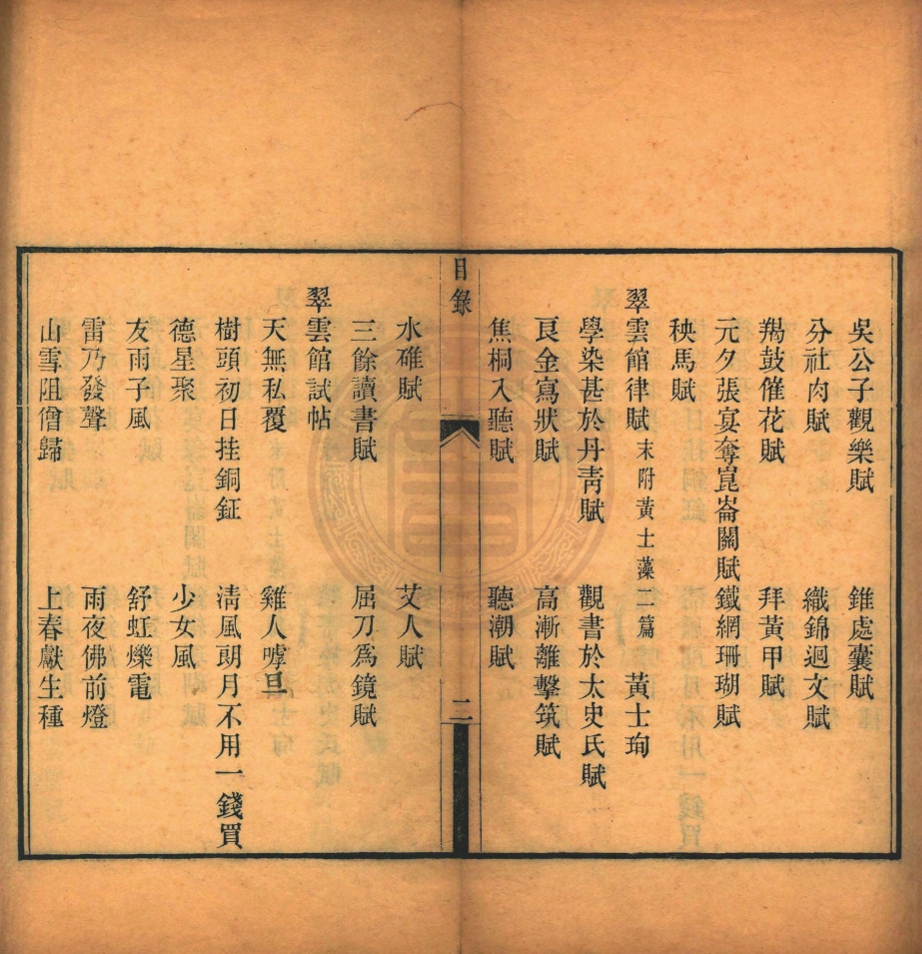 吳公子觀樂賦　錐處囊賦
分社肉賦　織錦迴文賦
羯鼓催花賦　拜黃甲賦
元夕張宴奪崑崙關賦　鐵網珊瑚賦
秧馬賦
翠雲館律賦　末附黃士藻二篇　黃士珣
學染甚於丹靑賦　觀書於太史氏賦
良金寫狀賦　高漸離擊筑賦
焦桐入聽賦　聽潮賦
目錄　二
水碓賦　艾人賦
三餘讀書賦　屈刀爲鏡賦
翠雲館試帖
天無私覆　雞人嘑旦
樹頭初日挂銅鉦　淸風朗月不用一錢買
德星聚　少女風
友雨子風　舒虹爍電
雷乃發聲　雨夜佛前燈
山雪阻僧歸　上春獻生種